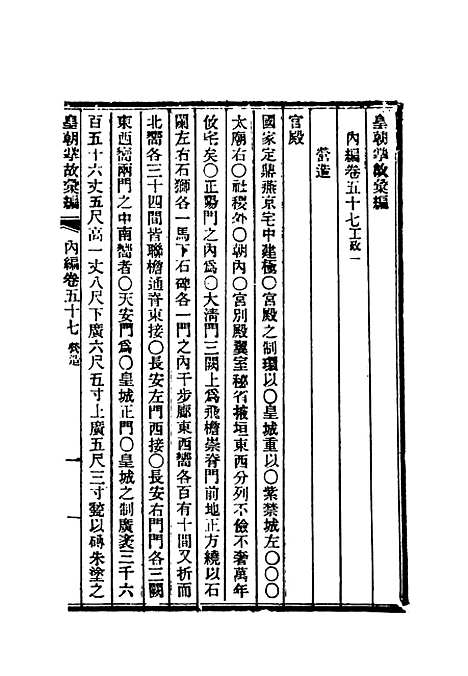 皇朝掌故彙編
內編卷五十七工政一
營造
官殿
國家定鼎燕京宅中建極○宮殿之制環以○皇城重以○紫禁城左○○○
太廟右○社稷外○朝內○宮別殿翼室秘省掖垣東西分列不儉不奢萬年
攸宅矣○正陽門之內爲○大淸門三闕上爲飛檐崇脊門前地正方繞以石
闌左右石獅各一馬下石碑各一門之內千步廊東西嚮各百有十間又折而
北嚮各三十四間皆聯檐通脊東接○長安左門西接○長安右門門各三闕
東西嚮兩門之中南嚮者○天安門爲○皇城正門○皇城之制廣袤三千六
百五十六丈五尺高一丈八尺下廣六尺五寸上廣五尺三寸甃以磚朱塗之
皇朝掌故彙編
內編卷五十七 營造
一